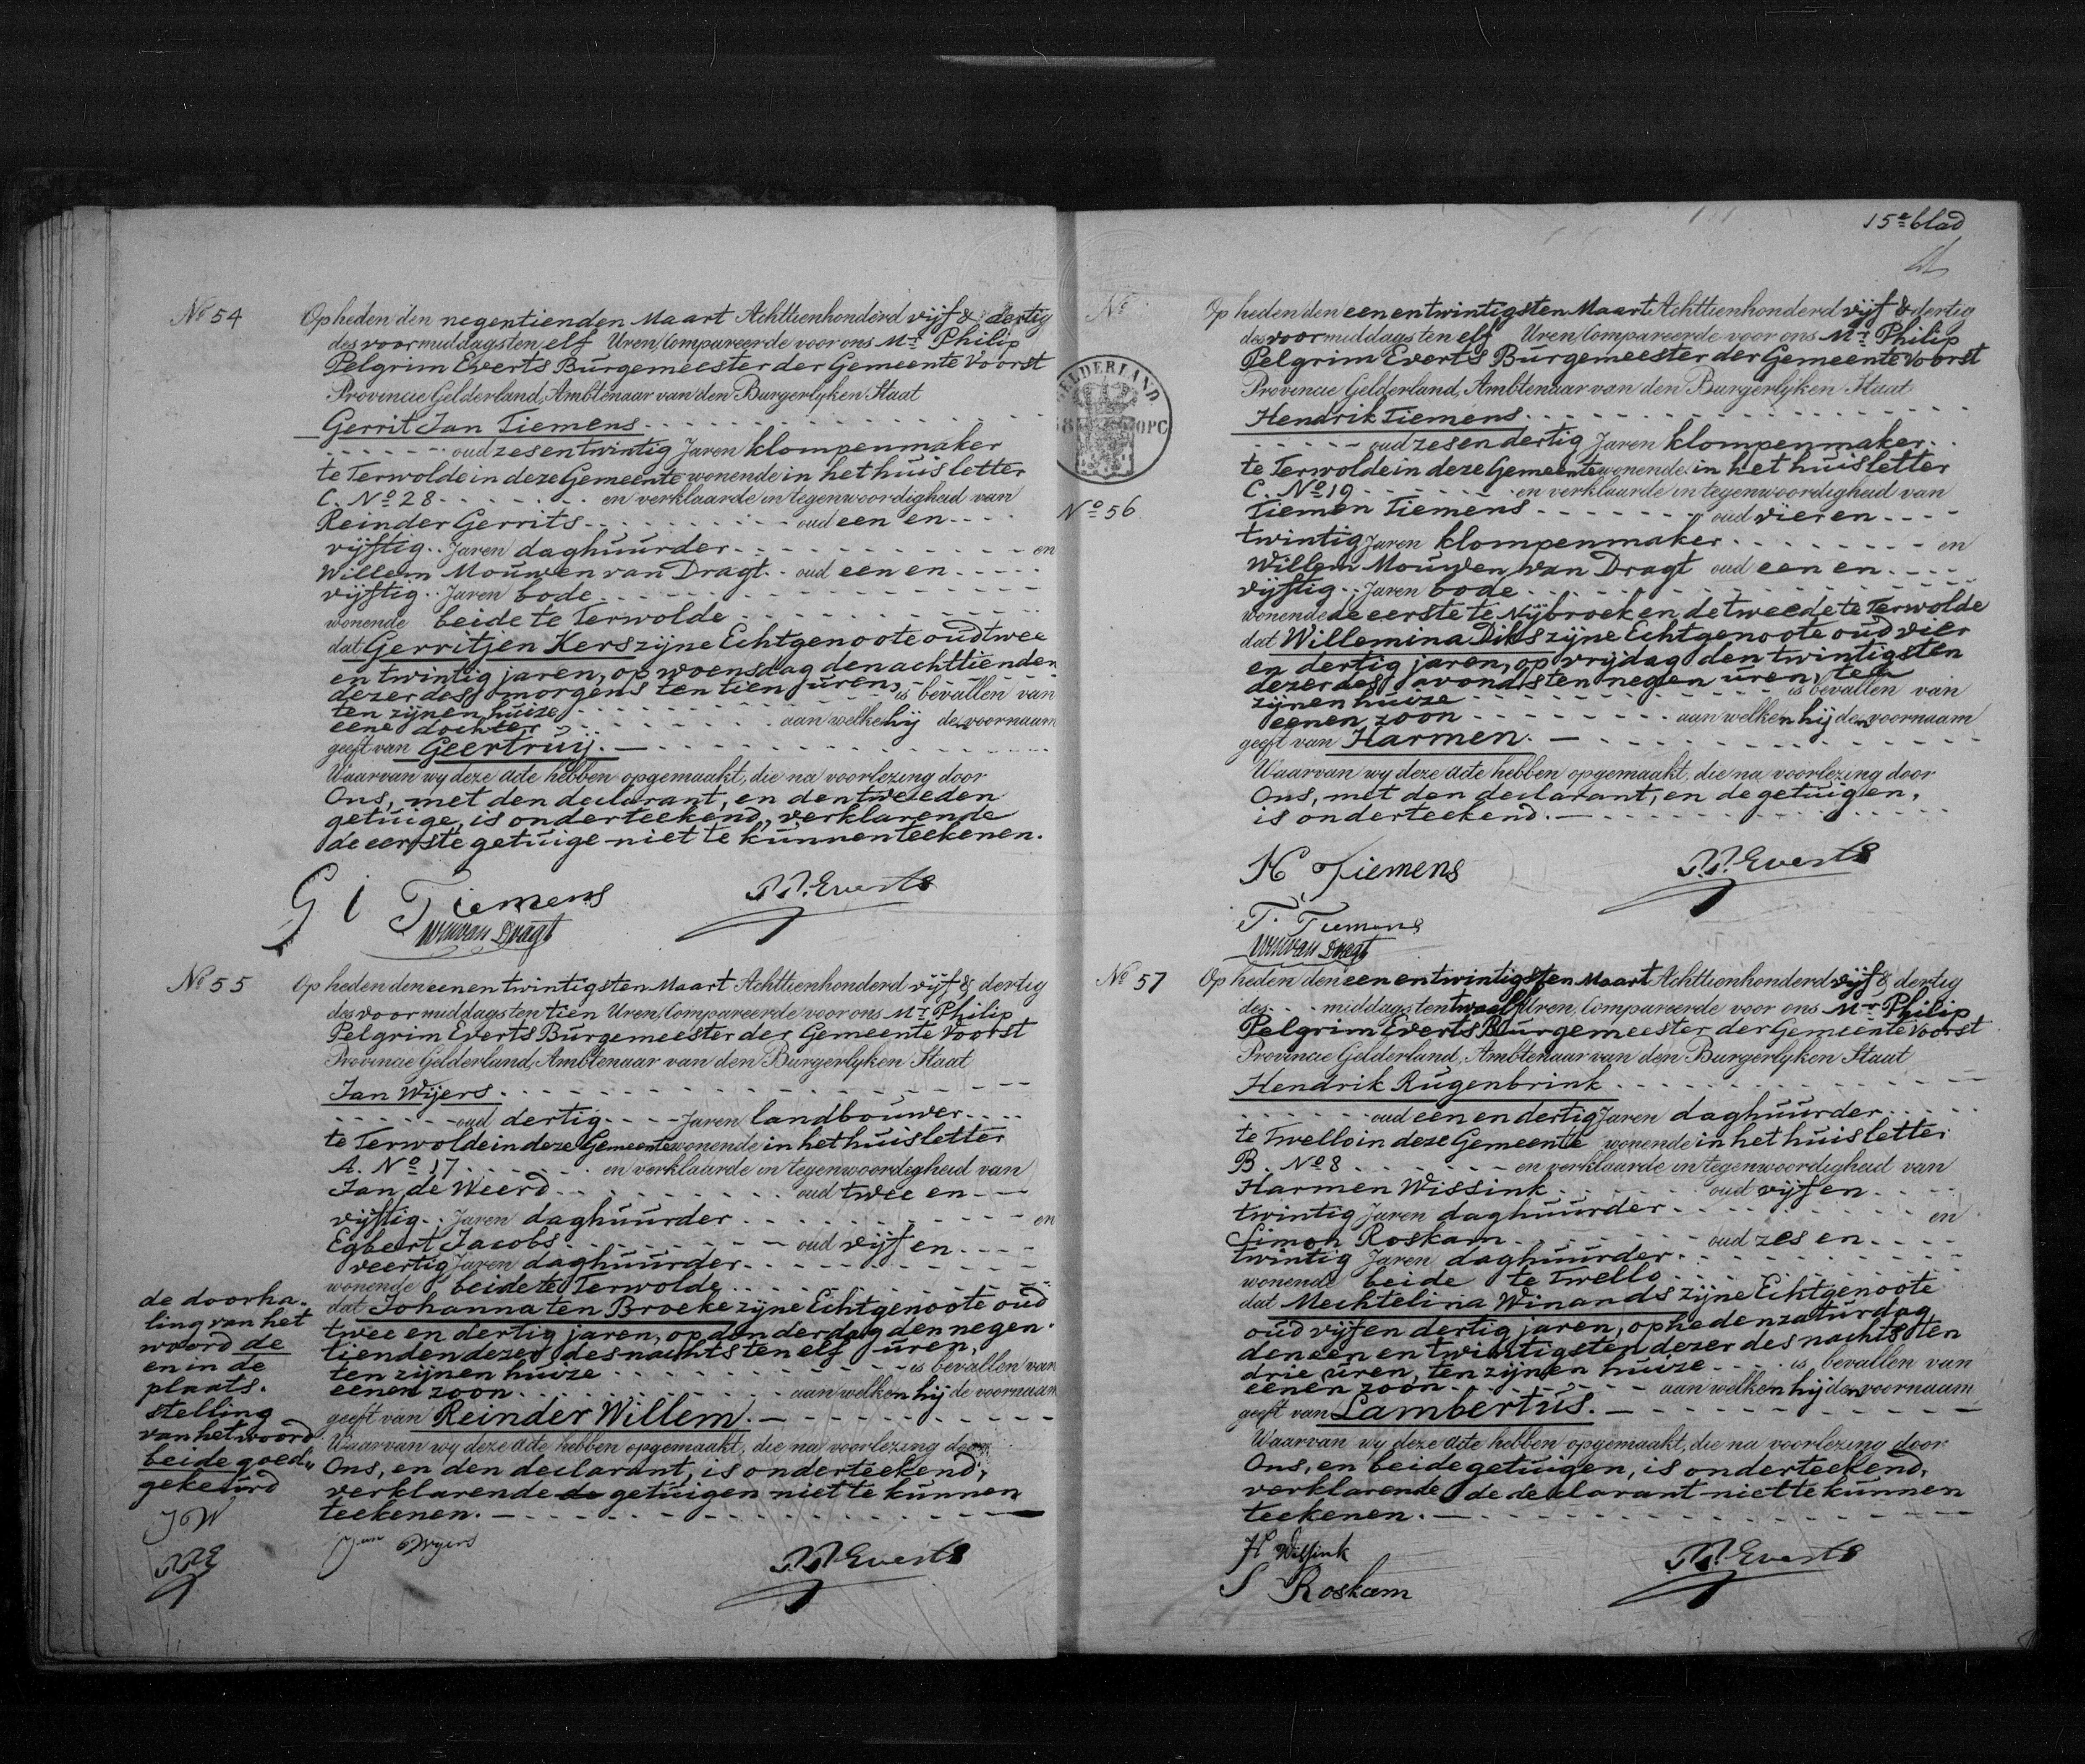 No 54
Op heden den negentienden Maart Achttienhonderd vijf & dertig
des voormiddags ten elf Uren, Compareerde voor ons Mr. Philip
Pelgrim Everts Burgemeester der Gemeente Voorst
Provincie Gelderland, Ambtenaar van den Burgerlyken Staat
Gerrit Jan Tiemens
oud zesentwintig Jaren klompenmaker
te Terwolde in deze Gemeente wonende in het huis letter
C. No 28 en verklaarde in tegenwoordigheid van
Reinder Gerrits oud een en
vijftig Jaren daghuurder en
Willem Mouwen van Dragt oud een en
vijftig Jaren bode
wonende beide te Terwolde
dat Gerritjen Kers zijne Echtgenoote oud twee
en twintig jaren, op woensdag den achttienden
dezer des morgens ten tien uren,
ten zijnen huize is bevallen van
eene dochter aan welke hij de voornaam
geeft van Geertruij.
Waarvan wy deze acte hebben opgemaakt, die na voorlezing door
Ons, met den declarant, en den tweeden
getuige, is onderteekend, verklarende
de eerste getuige niet te kunnen teekenen.
G i Tiemens
P.P. Everts
WM van Dragt
No 55
Op heden den eenentwintigsten Maart Achttienhonderd vijf & dertig
des voormiddags ten tien Uren, Compareerde voor ons Mr. Philip
Pelgrim Everts Burgemeester der Gemeente Voorst
Provincie Gelderland, Ambtenaar van den Burgerlyken Staat
Jan Wijers
oud dertig Jaren landbouwer
te Terwolde in deze Gemeente wonende in het huis letter
A. No 17 en verklaarde in tegenwoordigheid van
Jan de Weerd oud twee en
vijftig Jaren daghuurder en
Egbert Jacobs oud vijf en
veertig Jaren daghuurder
wonende beide te Terwolde
dat Johanna ten Broeke zijne Echtgenoote oud
twee en dertig jaren, op donderdag den negen
tienden dezer des nachts ten elf uren,
ten zijnen huize is bevallen van
eenen zoon aan welken hij de voornaam
geeft van Reinder Willem.
Waarvan wy deze acte hebben opgemaakt, die na voorlezing door
Ons, en den declarant, is onderteekend,
verklarende de getuigen niet te kunnen
teekenen.
Jan Wijers
P.P. Everts
de doorha-
ling van het
woord de
en in de
plaats.
stelling
van het woord
beide goed„
gekeurd
JW
PPE
15e blad
No
GELDERLAND
OPC
No 56
Op heden den eenentwintigsten Maart Achttienhonderd vijf & dertig
des voormiddags ten elf Uren, Compareerde voor ons Mr. Philip
Pelgrim Everts Burgemeester der Gemeente Voorst
Provincie Gelderland, Ambtenaar van den Burgerlyken Staat
Hendrik Tiemens
oud zesendertig Jaren klompenmaker
te Terwolde in deze Gemeente wonende in het huis letter
C. No 19 en verklaarde in tegenwoordigheid van
Tiemen Tiemens oud vier en
twintig Jaren klompenmaker en
Willem Mouwen van Dragt oud een en
vijftig Jaren bode
wonende de eerste te Nijbroek en de tweede te Terwolde
dat Willemina Diks zijne Echtgenoote oud vier
en dertig jaren, op vrijdag den twintigsten
dezer des avonds ten negen uren, ten
zijnen huize is bevallen van
eenen zoon aan welken hij den voornaam
geeft van Harmen.
Waarvan wy deze acte hebben opgemaakt, die na voorlezing door
Ons, met den declarant, en de getuigen,
is onderteekend.
H Tiemens
P.P. Everts
T. Tiemens
WM van Dragt
No 57
Op heden den eenentwintigsten Maart Achttienhonderd vijf & dertig
des middags ten twaalf Uren, Compareerde voor ons Mr. Philip
Pelgrim Everts Burgemeester der Gemeente Voorst
Provincie Gelderland, Ambtenaar van den Burgerlyken Staat
Hendrik Rugenbrink
oud een en dertig Jaren daghuurder
te Twello in deze Gemeente wonende in het huis letter
B. No 8 en verklaarde in tegenwoordigheid van
Harmen Wissink oud vijf en
twintig Jaren daghuurder en
Simon Roskam oud zes en
twintig Jaren daghuurder
wonende beide te Twello
dat Mechtelina Winands zijne Echtgenoote
oud vijf en dertig jaren, op heden zaturdag
den een en twintigsten dezer des nachts ten
drie uren, ten zijnen huize is bevallen van
eenen zoon aan welken hij den voornaam
geeft van Lambertus.
Waarvan wy deze acte hebben opgemaakt, die na voorlezing door
Ons, en beide getuigen, is onderteekend,
verklarende de declarant niet te kunnen
teekenen.
H Wissink
P.P. Everts
S Roskam